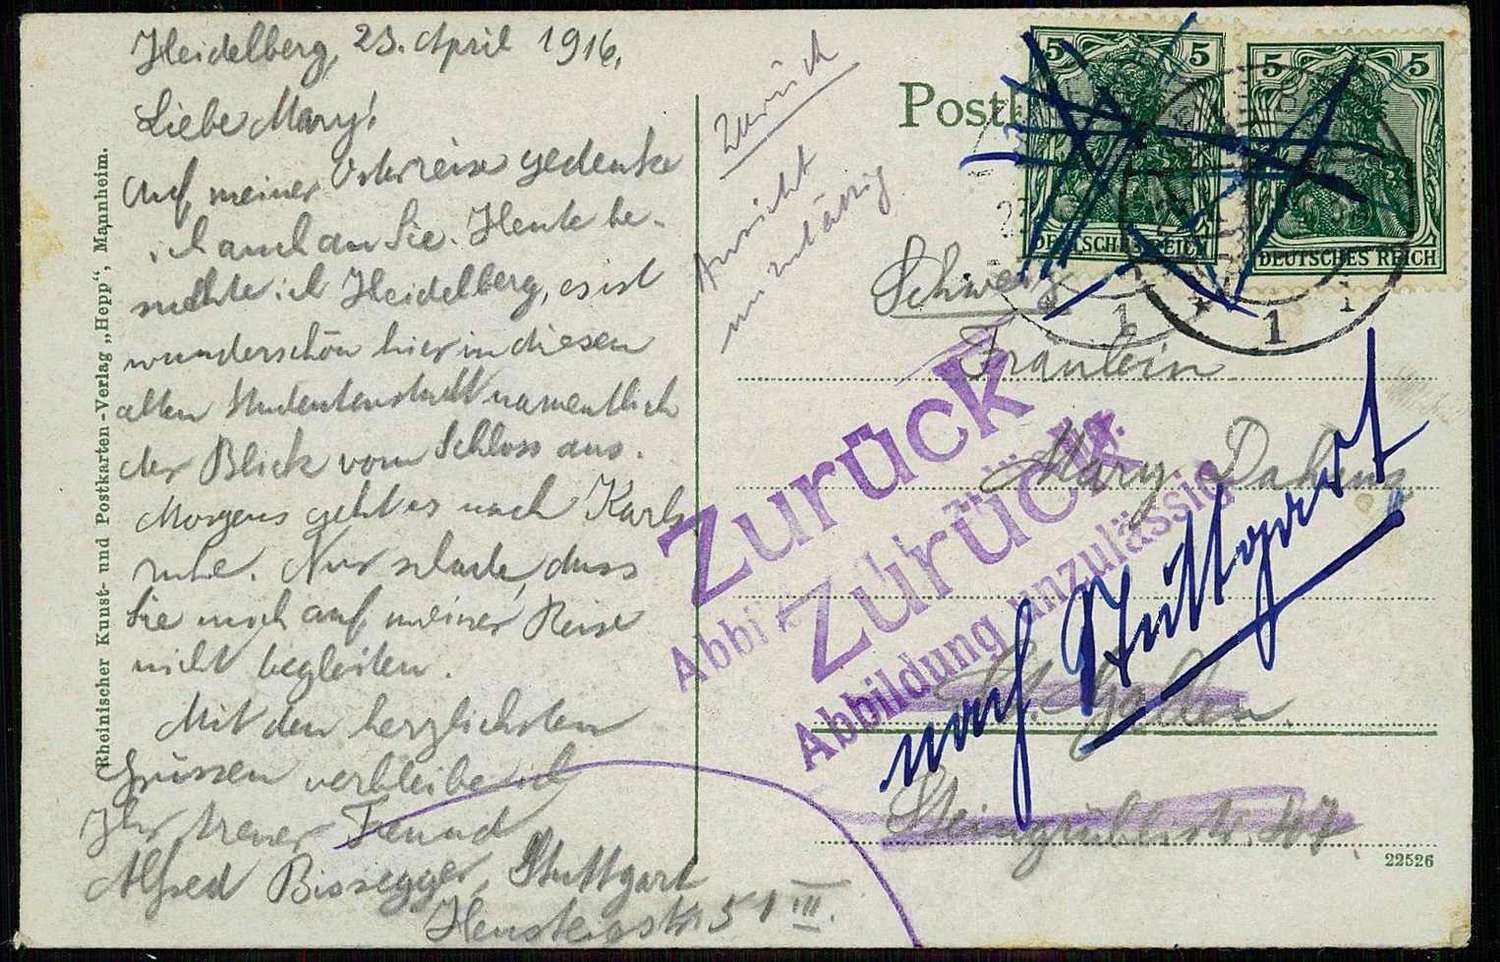 Heidelberg, 23. April 1916.
Liebe Mary!
Auf meiner Osterreise gedenke
ich auch an Sie. Heute be-
suchte ich Heidelberg, es ist
wunderschön hier in diesen
alten Studentenstadt namentlich
der Blick vom Schloss aus.
Morgens geht es nach Karls
ruhe. Nur schade, dass
Sie mich auf meiner Reise
nicht begleiten.
Mit den herzlichsten
Grüssen verbleibe ich
Ihr treuer Freund
Alfred Bissegger, Stuttgart
51 III.
Rheinischer Kunst- und Postkarten-Verlag „Hepp“, Mannheim.
Zurück
Ansicht
unzulässig
Postk
5 5
DEUTSCHES REICH
5 5
DEUTSCHES REICH
1
1
Schweiz
Fräulein
Mary
Zurück
Zurück
Abbi
Abbildung unzulässig
nach Stuttgart
St. Gallen.
47.
22526